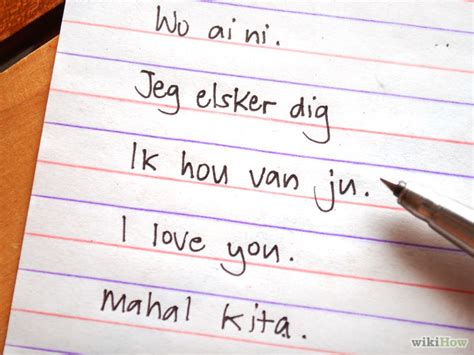 Wo ai ni.
Jeg elsker dig
Ik hou van ju.
I love you.
Mahal kita.
wikiHow